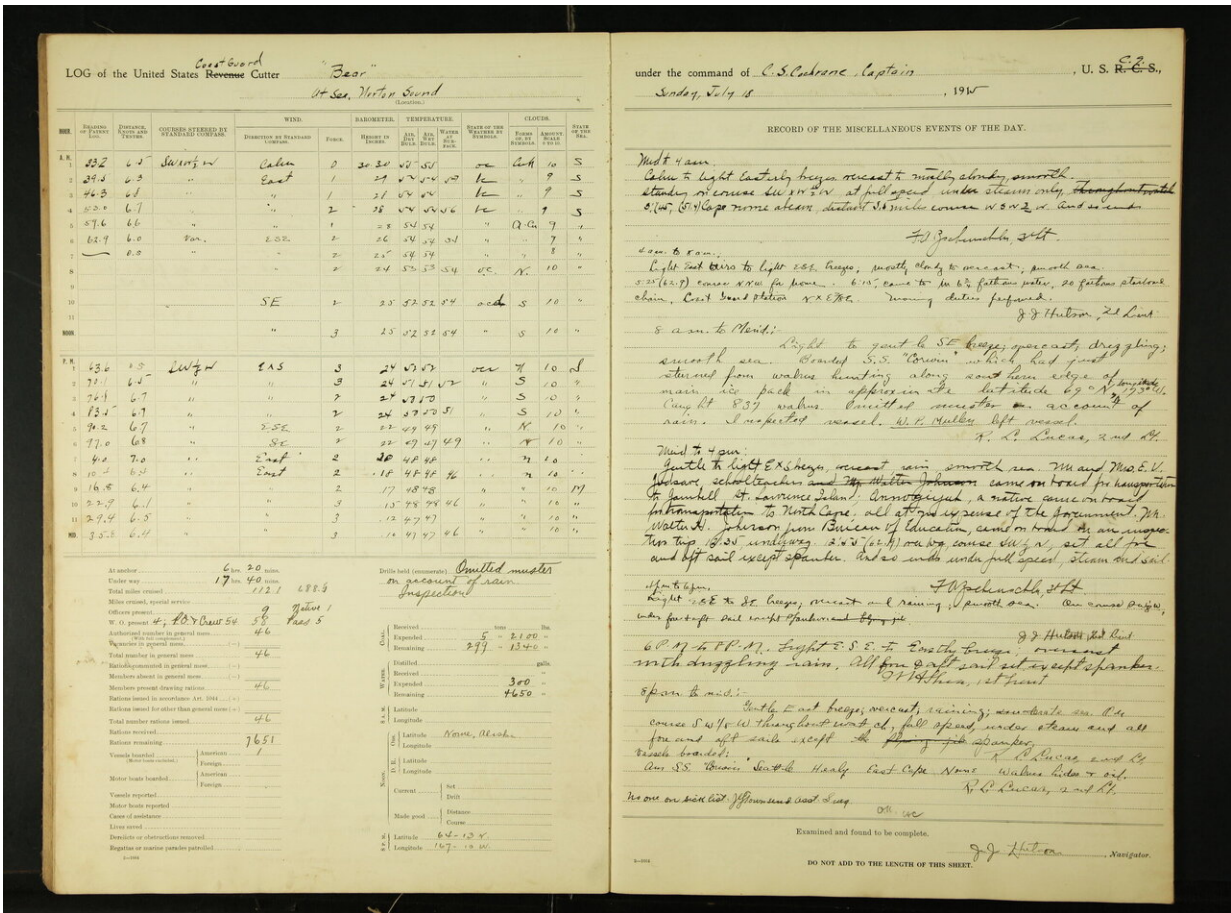 Coast Guard
LOG of the United States Revenue Cutter "Bear"
At Sea, Norton Sound
(Location.)
HOUR.
READING OF PATENT LOG.
DISTANCE, KNOTS AND TENTHS.
COURSES STEERED BY STANDARD COMPASS.
WIND.
DIRECTION BY STANDARD COMPASS.
FORCE.
BAROMETER.
HEIGHT IN INCHES.
TEMPERATURE.
AIR, DRY BULB.
AIR, WET BULB.
WATER AT SURFACE.
STATE OF THE WEATHER BY SYMBOLS.
CLOUDS.
FORMS OF, BY SYMBOLS.
AMOUNT, SCALE 0 TO 10.
STATE OF THE SEA.
A. M.
1 Calm 0 30 30 10 S
2 39.5 6.3 East 1 29 9 S
3 46.3 6.8 " 1 9 S
4 6.7 " 2 28 54 54 56 9 S
5 59.6 " " 54 54 " 9 "
6 62.9 6.0 Var. ESE 2 26 54 54 54 " 9 "
7 2 25 54 54 " 8 "
8 2 24 53 53 54 o.c. N. 10 "
10 SE 2 25 52 52 54 ocd S 10 "
11
NOON. " 3 25 52 52 54 " S 10 "
P. M.
1 63.6 SW½W ExS 3 24 52 52 ocr N 10 S
2 70.1 6.5 " " 3 24 51 51 52 " S 10 "
3 6.7 " " 2 24 " S 10 "
4 83.5 6.7 " " 2 24 51 " S 10 "
5 90.2 6.7 " ESE 2 22 49 49 " N 10 "
6 97.0 6.8 " SE 2 22 47 47 49 " N 10 "
7 4.0 7.0 " East 2 20 48 48 " N 10 "
8 6.4 " East 2 .18 48 48 46 " N 10 "
9 16.8 6.4 2 17 48 48 " " 10 M
10 22.9 6.1 3 .15 48 48 46 " " 10 "
11 29.4 6.5 3 .12 47 47 " " 10 "
MD. 35.8 6.4 " 3 .10 47 47 46 " " 10 "
At anchor 6 hrs. 20 mins.
Under way 17 hrs. 40 mins.
Total miles cruised 112.1 688.6
Miles cruised, special service
Officers present 9 Native 1
W. O. present 4; P.O. & Crew 54 58 Pass 5
Authorized number in general mess 46
(With full complement.)
Vacancies in general mess (-)
Total number in general mess 46
Rations commuted in general mess (-)
Members absent in general mess (-)
Members present drawing rations 46
Rations issued in accordance Art. 2044 (+)
Rations issued for other than general mess (+)
Total number rations issued 46
Rations received
Rations remaining 7651
Vessels boarded American 1
(Motor boats excluded.) Foreign
Motor boats boarded American
Foreign
Vessels reported
Motor boats reported
Cases of assistance
Lives saved
Derelicts or obstructions removed
Regattas or marine parades patrolled
Drills held (enumerate) Omitted muster
on account of rain.
Inspection
COAL.
Received tons lbs.
Expended 5 - 2100 -
Remaining 299 - 1340 -
WATER.
Distilled galls.
Received "
Expended 300 "
Remaining 4650 "
8 A. M.
Latitude
Longitude
NOON.
Obs.
Latitude Nome, Alaska
Longitude
D. R.
Latitude
Longitude
Current Set
Drift
Made good Distance
Course
8 P. M.
Latitude 64-13 N.
Longitude 167-10 W.
under the command of C. S. Cochrane, Captain, U. S. R. C. S., C. G.
Sunday, July 18, 1915
RECORD OF THE MISCELLANEOUS EVENTS OF THE DAY.
Mid to 4 a.m.
Calm to light Easterly breezes overcast to mostly cloudy, smooth.
Standing on course SW x W ½ W at full speed under steam only, throughout watch
Cape Nome abeam, distant 3.5 miles course And so ends
3d Lt.
4 a.m. to 8 a.m.:
Light East airs to light ESE breezes, mostly cloudy to overcast, smooth sea.
5:25 (62.9) course N.N.W. for Nome. 6:15, came to in 6¾ fathoms water, 30 fathoms starboard
chain, Coast Guard Station Morning duties performed.
J. J. Hutson, 2d Lieut
8 a.m. to Merid.:
Light to gentle SE breeze; overcast, drizzling;
smooth sea. Boarded S.S. "Corwin" which had just
returned from walrus hunting along southern edge of
main ice pack in approximate latitude 69° N, longitude 173° W.
Caught 837 walrus. Omitted muster on account of
rain. Inspected vessel. W. P. Mulley left vessel.
R. L. Lucas, 2nd Lt.
Merid to 4 p.m.:
Gentle to light ExS breezes, overcast, rain, smooth sea. Mr and Mrs. E. V.
schoolteachers and Mr. Walter Johnson came on board for transportation
to Gambell St. Lawrence Island; a native came on board
for transportation to North Cape, all at no expense of the Government. Mr.
Walter H. Johnson from Bureau of Education, came on board on an inspec-
tion trip. 12:35 underway. 12:55 (62.9) over log, course SW½W, set all fore
and aft sail except spanker. And so ends under full speed, steam and sail.
3d Lt.
4 p.m. to 6 p.m.
Light ESE to SE breezes; overcast and raining, smooth sea. On course SW½W,
under fore & aft sail except spanker and flying jib.
J. J. Hutson, 2d Lieut
6 P.M. to 8 P.M. Light E.S.E. to Easterly breeze, overcast
with drizzling rain, All fore & aft sail set except spanker.
1st Lieut
8 p.m. to mid.:-
Gentle East breeze; overcast; raining; moderate sea. On
course SW½W throughout watch, full speed, under steam and all
fore and aft sails except the flying jib spanker,
Vessels boarded: R. L. Lucas, 2nd Lt.
Am SS. "Corwin" Seattle Healy East Cape Nome Walrus hides & oil.
R. L. Lucas, 2nd Lt.
No one on sick list. J. G. Townsend asst Surg.
OK.
Examined and found to be complete.
J. J. Hutson, Navigator.
DO NOT ADD TO THE LENGTH OF THIS SHEET.